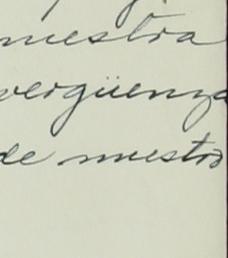 nuestra
vergüenza
de nuestro